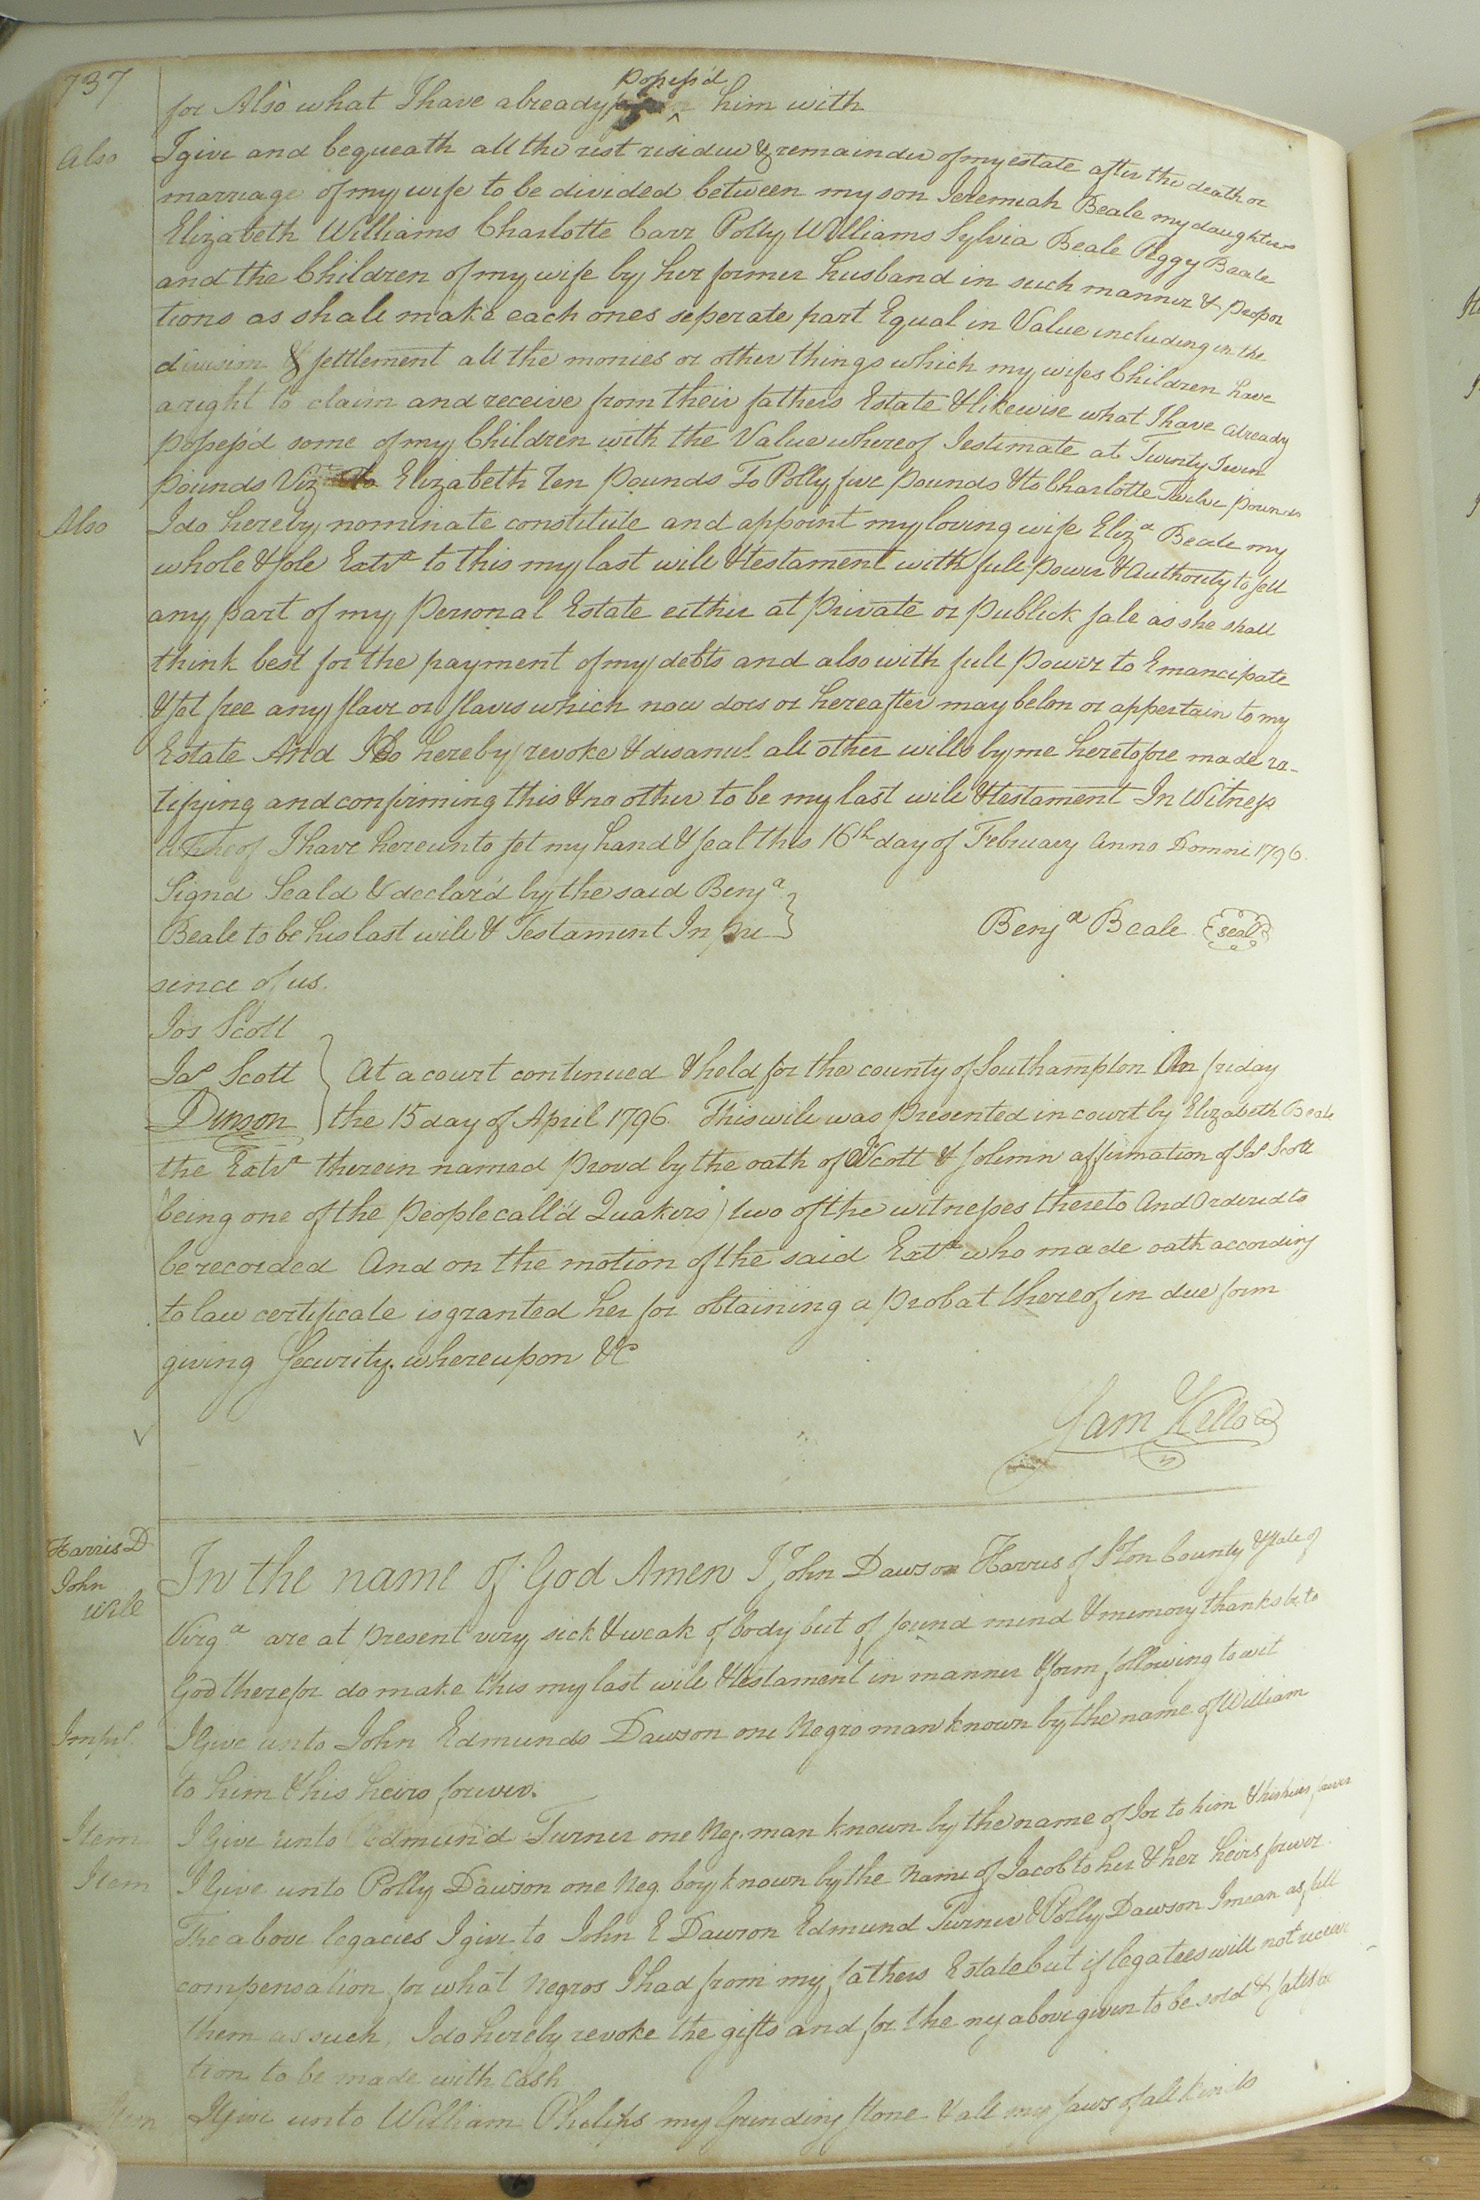 737
for Also what I have already possess'd him with
Also I give and bequeath all the rest residue & remainder of my estate after the death or
marriage of my wife to be divided between my son Jeremiah Beale my daughters
Elizabeth Williams Charlotte Carr Polly Williams Sylvia Beale Peggy Beale
and the Children of my wife by her former husband in such manner & propor
tions as shall make each ones seperate part Equal in Value including in the
division & settlement all the monies or other things which my wifes Children have
a right to claim and receive from their fathers Estate & likewise what I have already
possess'd some of my Children with the Value whereof I estimate at Twenty Seven
pounds Viz to Elizabeth Ten pounds To Polly five pounds & to Charlotte Twelve pounds
Also I do hereby nominate constitute and appoint my loving wife Eliz.a Beale my
whole & sole Extr.a to this my last will & testament with full power & Authority to sell
any part of my Personal Estate either at Private or Publick sale as she shall
think best for the payment of my debts and also with full power to Emancipate
& set free any slave or slaves which now does or hereafter may belon or appertain to my
Estate And I do hereby revoke & disanul all other wills by me heretofore made ra-
tifying and confirming this & no other to be my last will & testament In Witness
whereof I have hereunto set my hand & seal this 16th day of February Anno Domni 1796.
Signd Seald & declar'd by the said Benj.a
Beale to be his last will & Testament In pre Benj.a Beale seal
sence of us.
Jos Scott
Ja.s Scott At a court continued & held for the county of Southampton On friday
Dunson the 15 day of April 1796. This will was presented in court by Elizabeth Beale
the Extr.a therein named provd by the oath of Scott & solemn affirmation of Ja.s Scott
(being one of the People call'd Quakers) two of the witnesses thereto And Ordered to
be recorded And on the motion of the said Extr.a who made oath according
to law certificate is granted her for obtaining a probat thereof in due form
giving Security. whereupon &c
Sam Kello
Harris D John Will
In the name of God Amen I John Dawson Harris of S Ton County & State of
Virg.a are at present very sick & weak of body but of sound mind & memory thanks be to
God therefor do make this my last will & testament in manner & form following to wit
Impr. I Give unto John Edmunds Dawson one Negro man known by the name of William
to him & his heirs forever.
Item I Give unto Edmund Turner one Neg. man known by the name of Joe to him & his heirs forever
Item I Give unto Polly Dawson one Neg. boy known by the name of Jacob to her & her heirs forever
The above legacies I give to John E Dawson Edmund Turner & Polly Dawson I mean as full
compensation for what Negros I had from my fathers Estate but if legatees will not receive
them as such, I do hereby revoke the gifts and for the neg above given to be sold & satisfac
tion to be made with cash
Item I Give unto William Phelips my Grinding stone & all my saws of all kinds